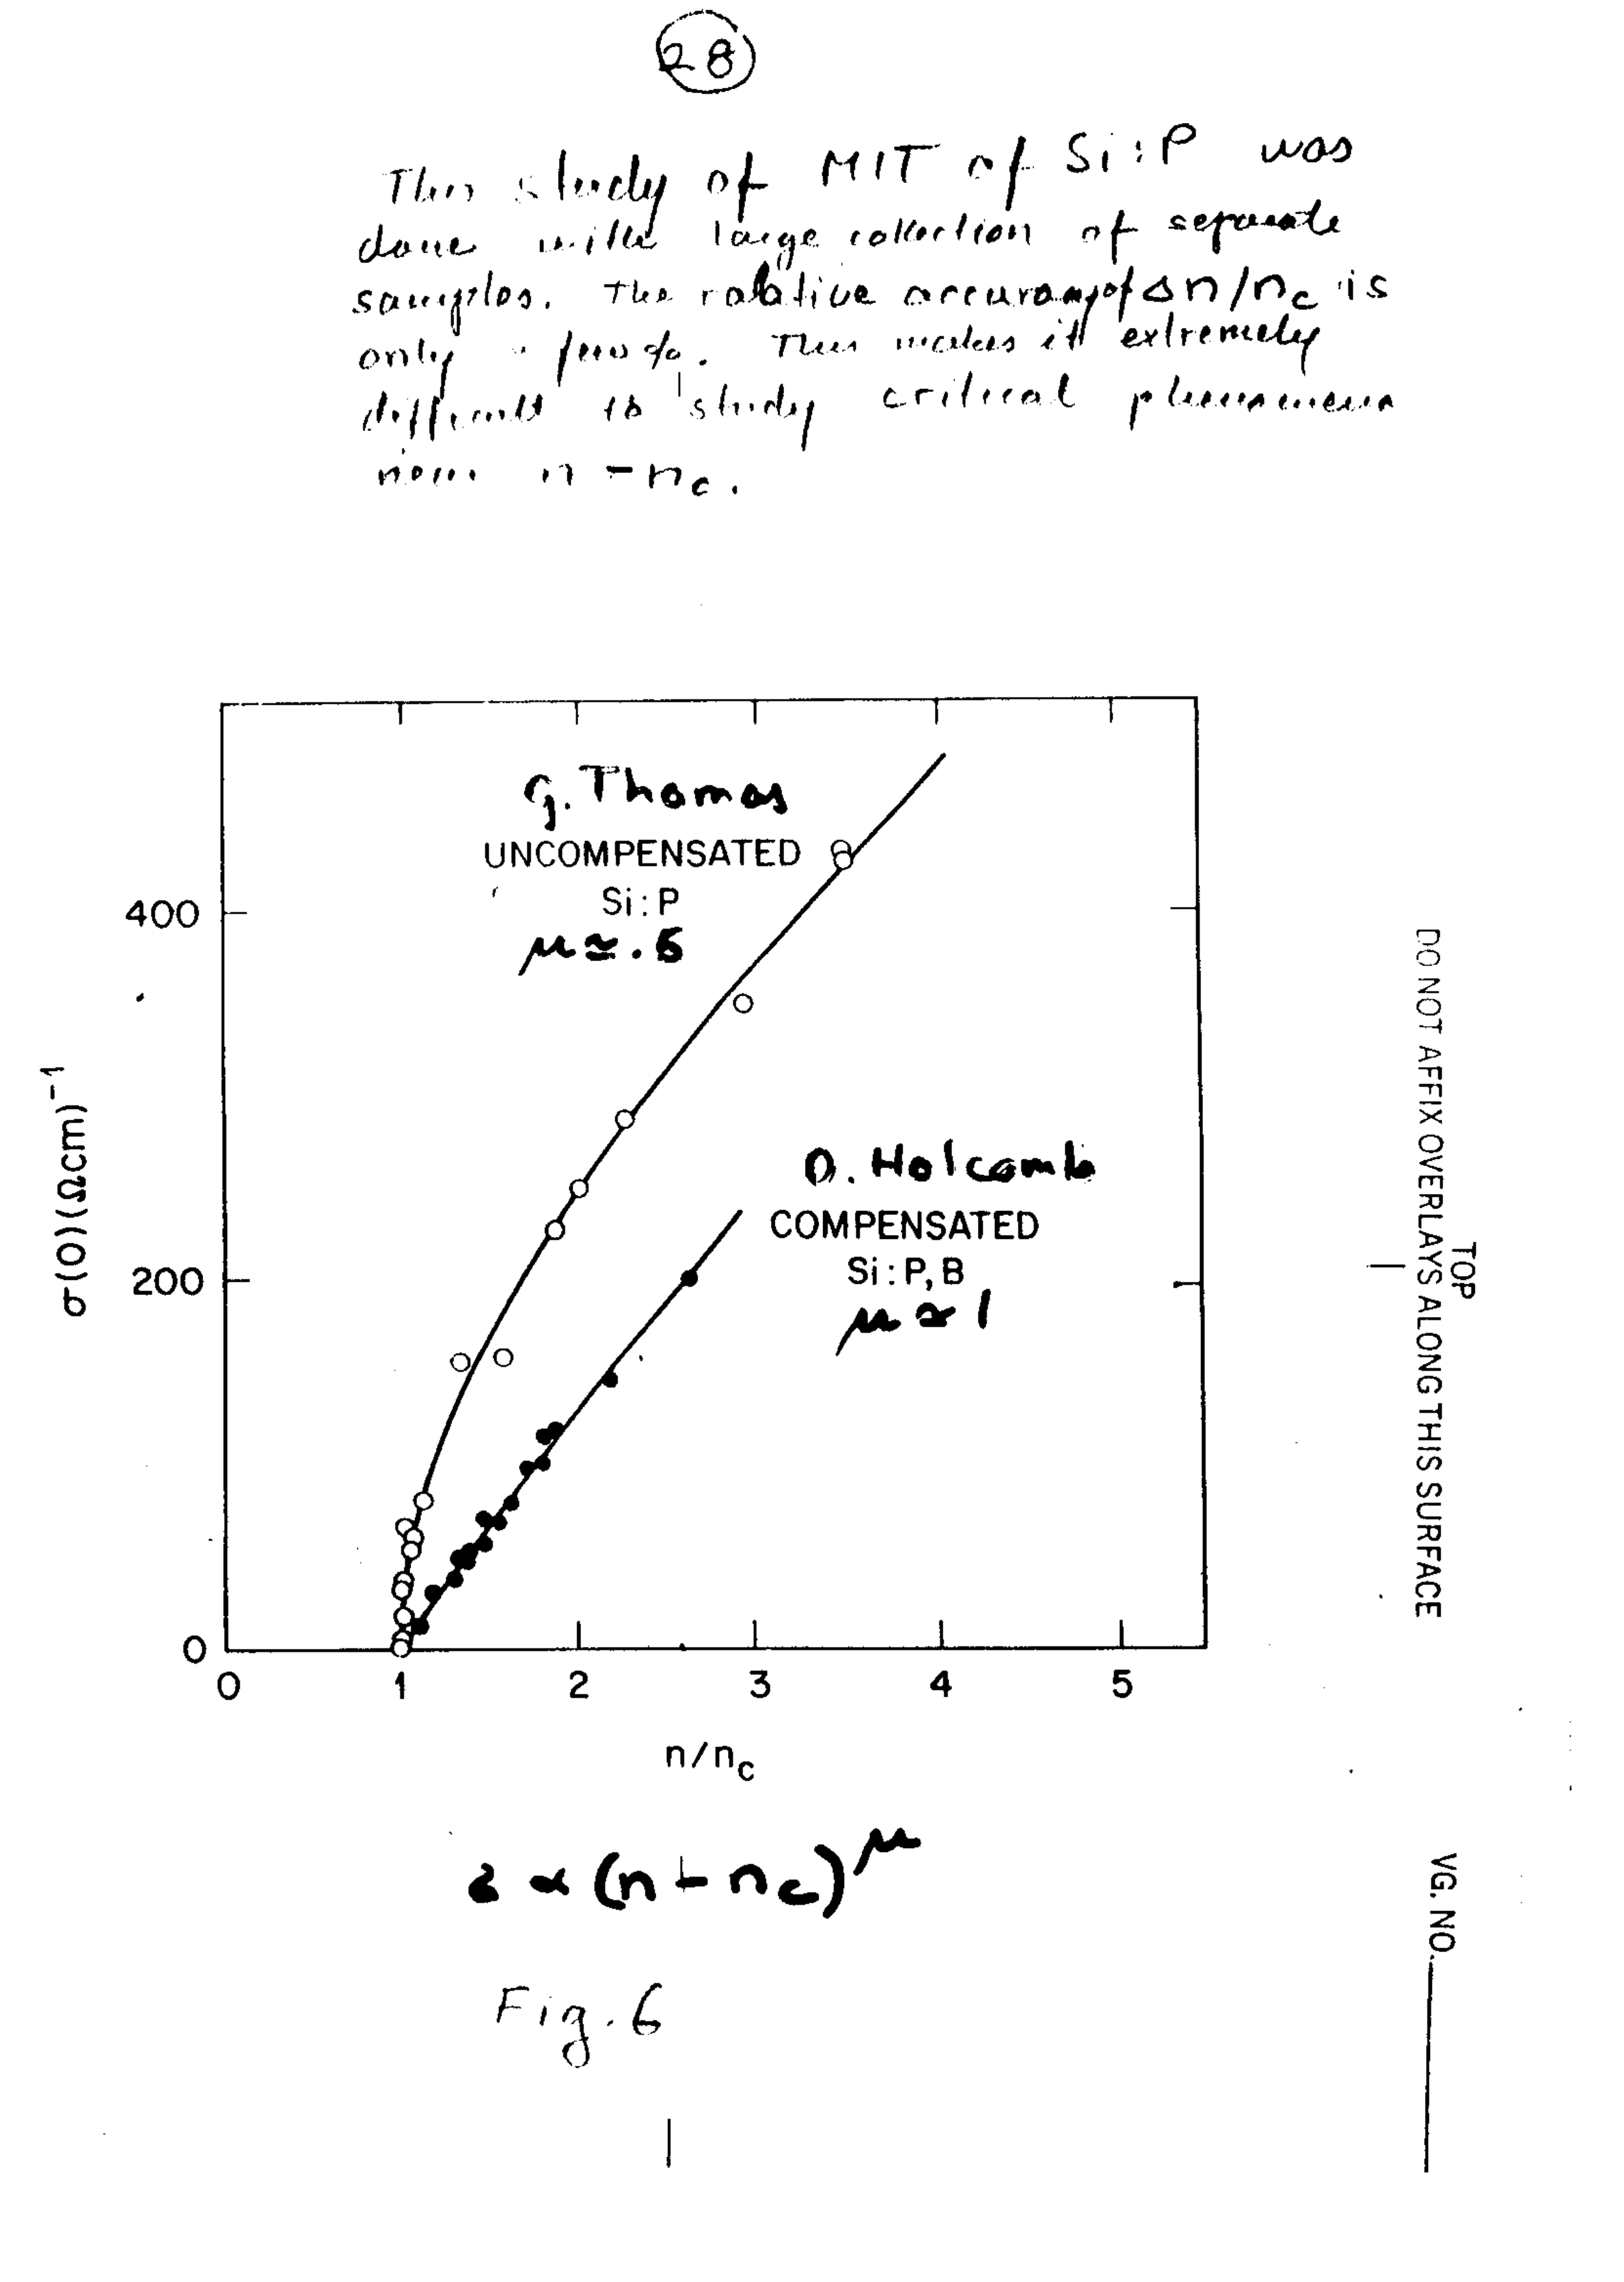 28
This study of MIT of Si:P was
done with large collection of separate
samples. The relative accuracy of Δn/nc is
only a few %. This makes it extremely
difficult to study critical phenomena
near n - nc.
G. Thomas
UNCOMPENSATED
Si:P
μ≃.5
400
D. Holcomb
COMPENSATED
Si:P,B
μ≃1
200
0
0 1 2 3 4 5
σ(0)(Ωcm)⁻¹
n/nc
σ ∝ (n - nc)^μ
Fig. 6
DO NOT AFFIX OVERLAYS ALONG THIS SURFACE
TOP
VG. NO.